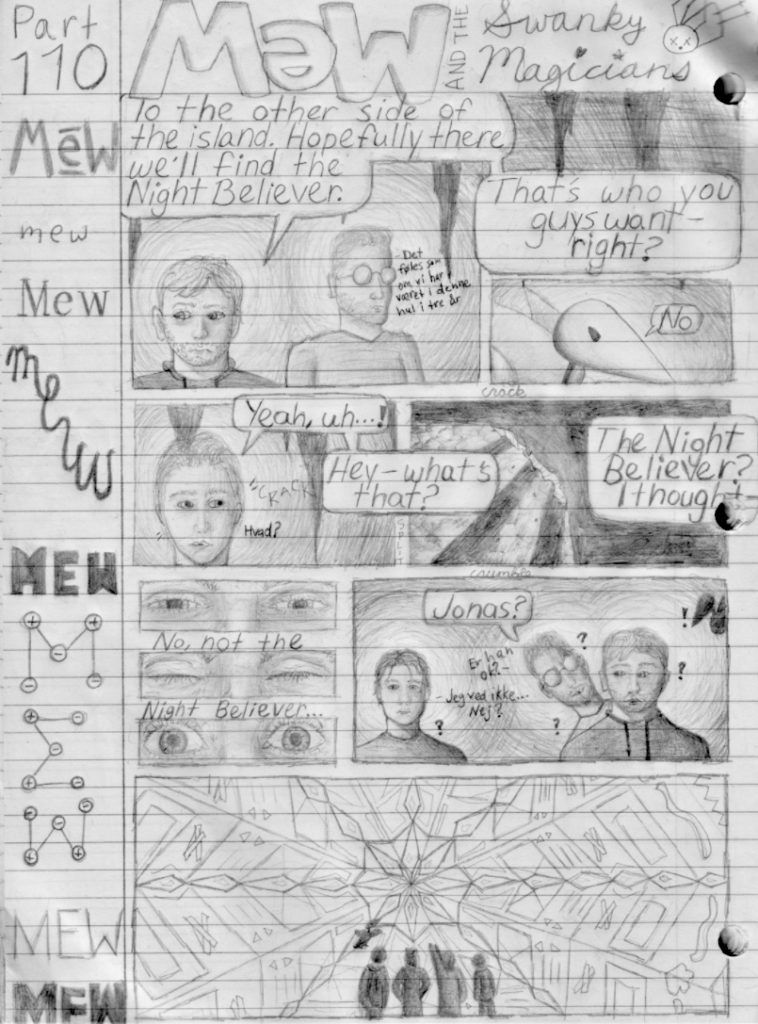 Part
110
MeW
AND THE
Swanky
Magicians
MēW
mew
Mew
mew
MEW
MEW
MEW
MEW
To the other side of
the island. Hopefully there
we'll find the
Night Believer.
- Det
føles som
om vi har
været i denne
hul i tre år
That's who you
guys want-
right?
No
Yeah, uh...!
"CRACK"
Hvad?
Hey-what's
that?
crack
SPLIT
crumble
The Night
Believer?
I thought
No, not the
Night Believer...
Jonas?
Er han
ok?-
- Jeg ved ikke...
Nej?
?
?
?
?
!